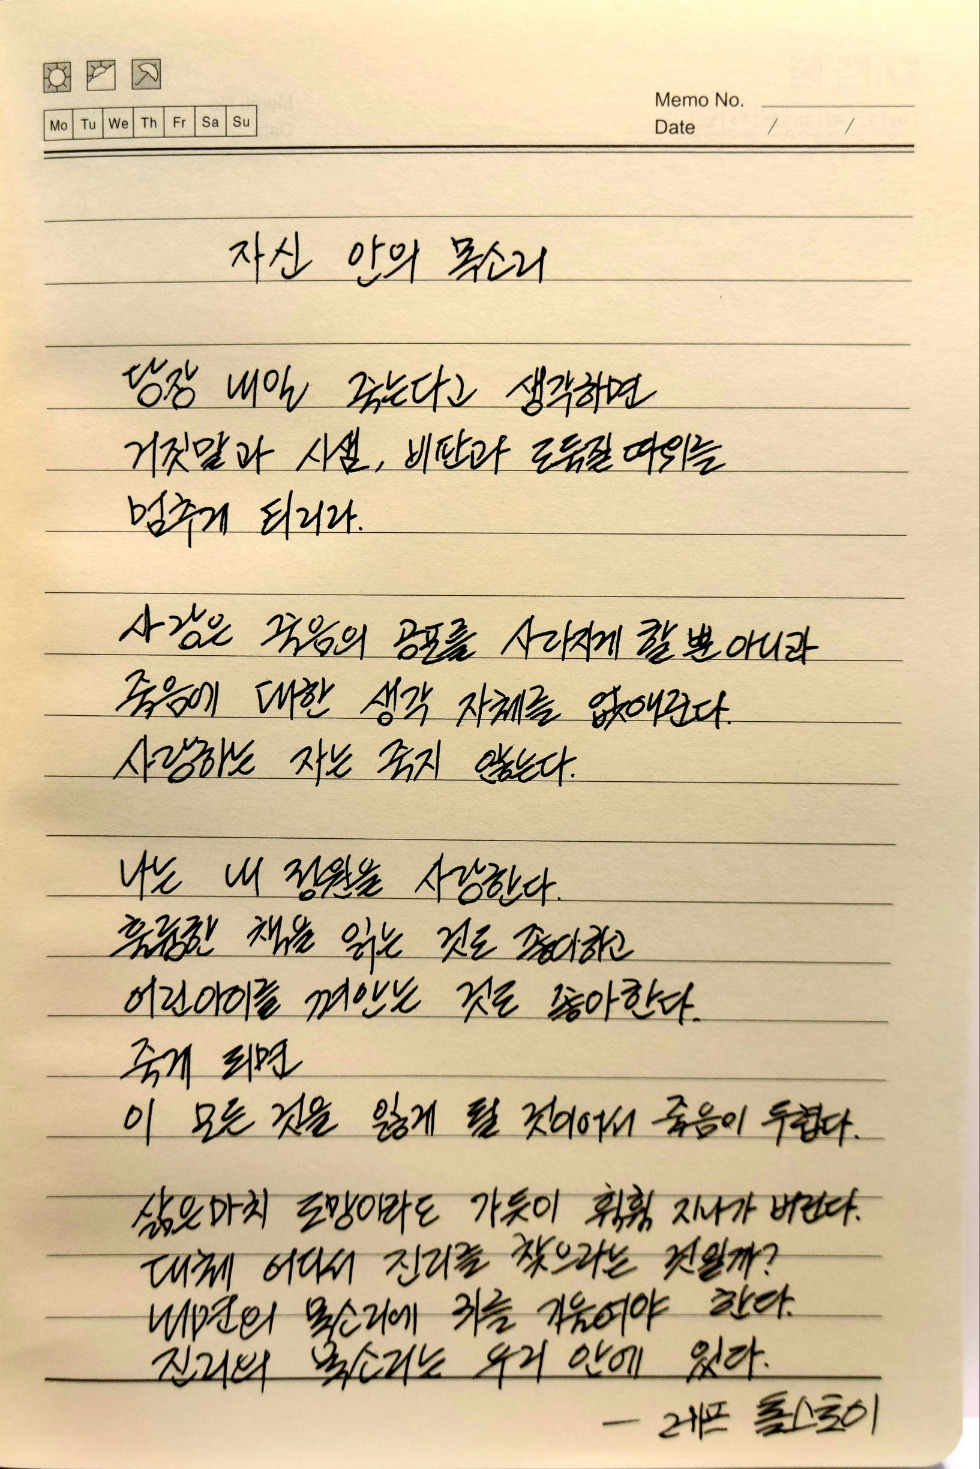 Mo Tu We Th Fr Sa Su
Memo No.
Date / /
자신 안의 목소리
당장 내일 죽는다고 생각하면
거짓말과 시샘, 비판과 도둑질 따위는
멈추게 되리라.
사랑은 죽음의 공포를 사라지게 할 뿐 아니라
죽음에 대한 생각 자체를 없애준다.
사랑하는 자는 죽지 않는다.
나는 내 정원을 사랑한다.
훌륭한 책을 읽는 것도 좋아하고
어린아이를 껴안는 것도 좋아한다.
죽게 되면
이 모든 것을 잃게 될 것이어서 죽음이 두렵다.
삶은 마치 도망이라도 가듯이 휙휙 지나가 버린다.
대체 어디서 진리를 찾으라는 것일까?
내면의 목소리에 귀를 기울여야 한다.
진리의 목소리는 우리 안에 있다.
- 레프 톨스토이